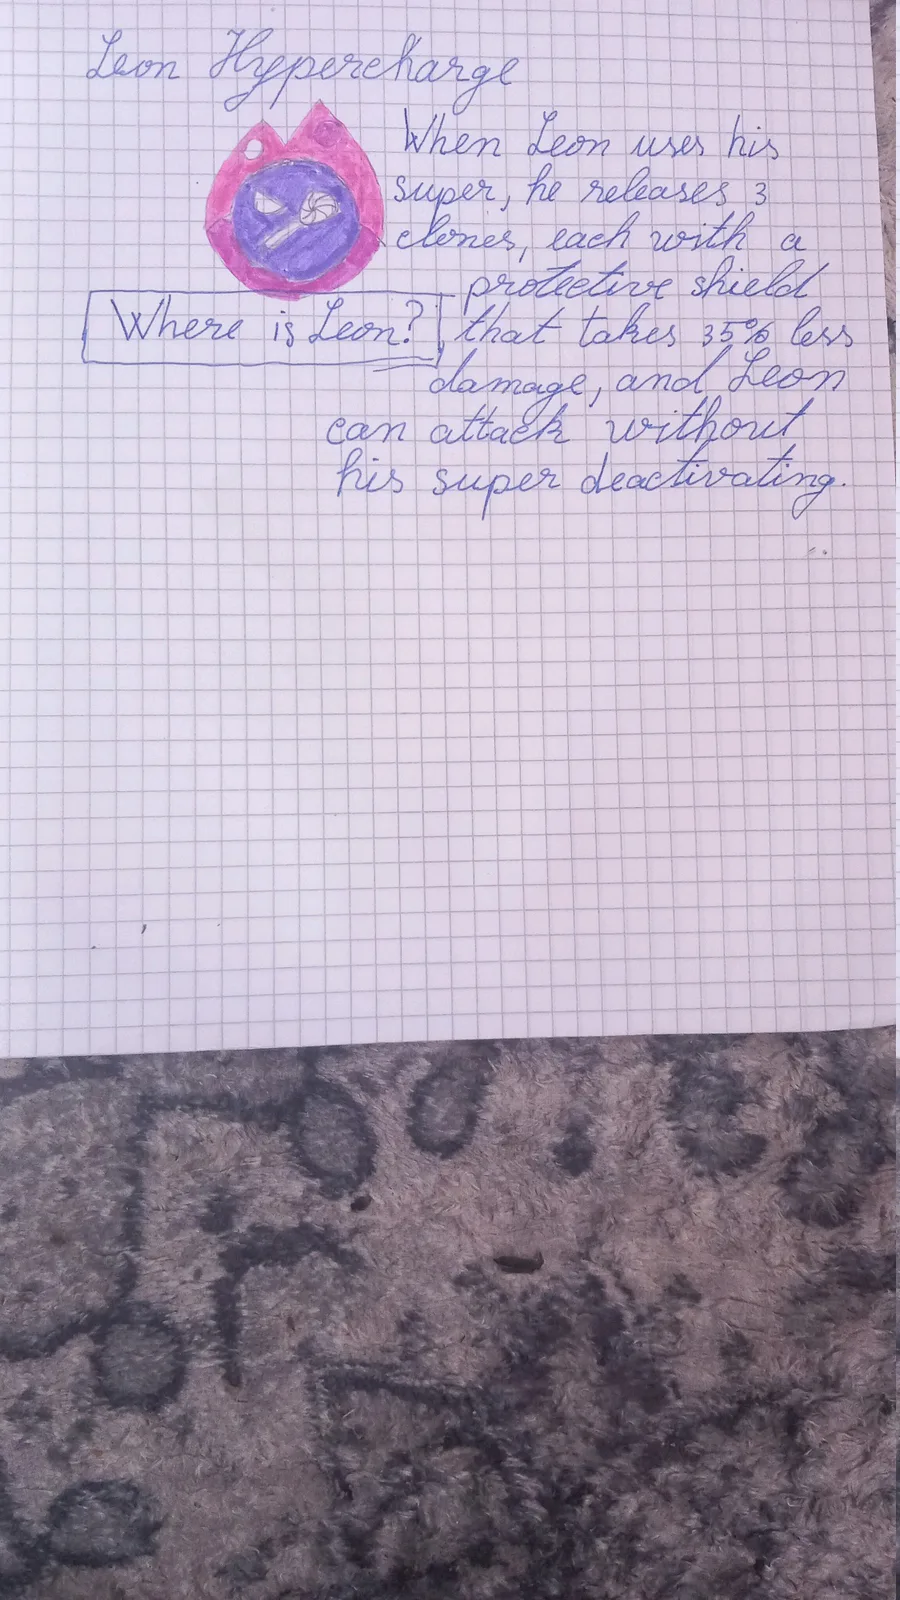 Leon Hypercharge
When Leon uses his
super, he releases 3
clones, each with a
protective shield
Where is Leon?
that takes 35% less
damage, and Leon
can attack without
his super deactivating.